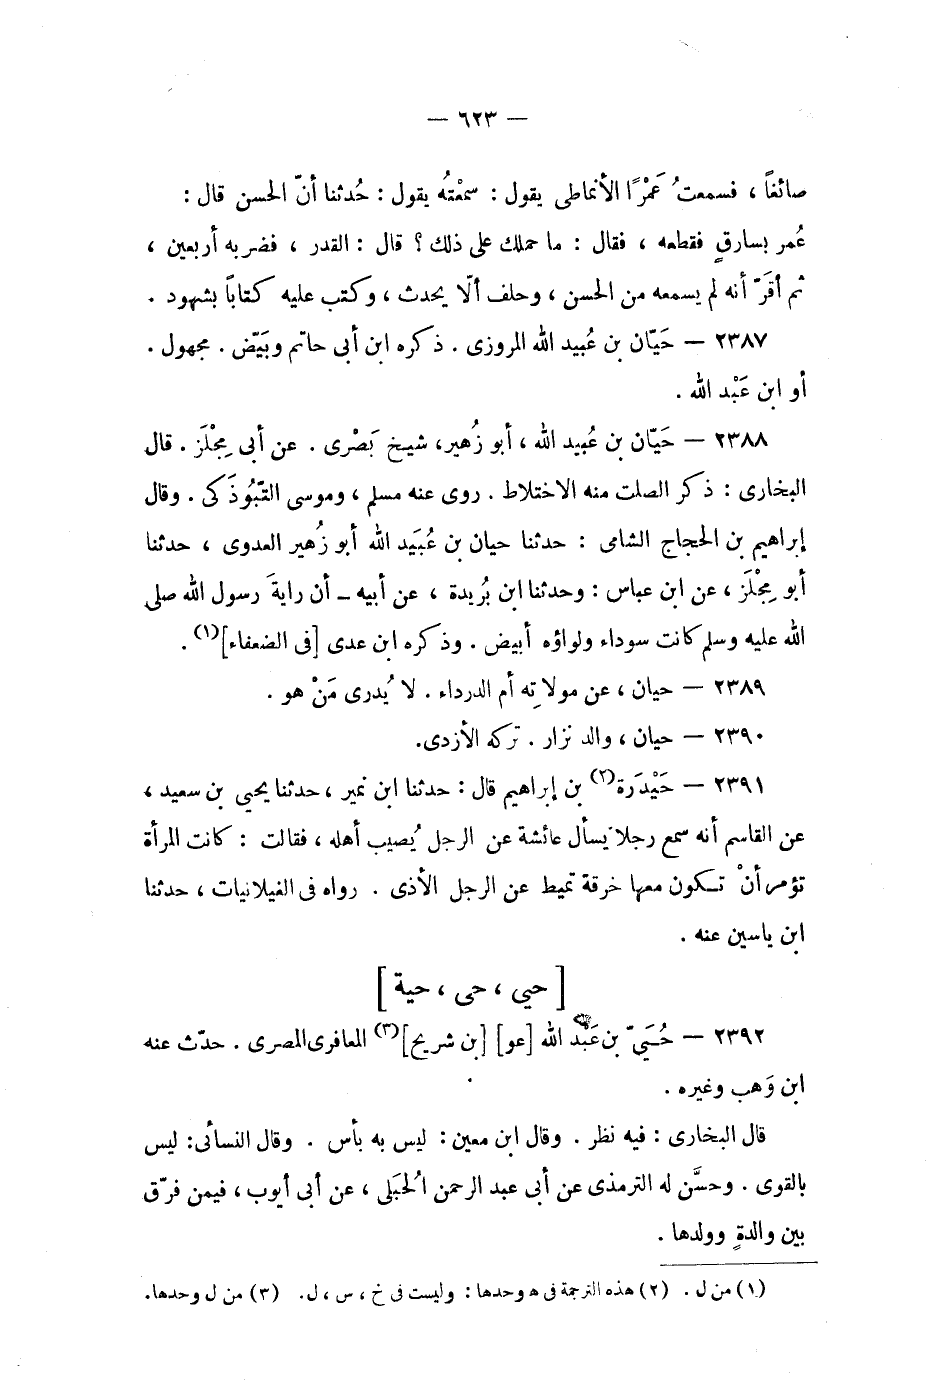 — ٦٢٣ —
صائغاً ، فسمعتُ عَمْرًا الأنماطى يقول : سمعْتهُ يقول : حُدثنا أنّ الحسن قال :
عُمر بسارقٍ فقطعه ، فقال : ما حملك على ذلك ؟ قال : القدر ، فضربه أربعين ،
ثم أقَرّ أنه لم يسمعه من الحسن ، وحلف ألّا يحدث ، وكتب عليه كتاباً بشهود .
٢٣٨٧ — حَيّان بن عُبيد الله المروزى . ذكره ابن أبى حاتم وبَيّض . مجهول .
أو ابن عَبْد الله .
٢٣٨٨ — حَيّان بن عُبيد الله ، أبو زُهير، شيخ بَصْرى . عن أبى مِجْلَز . قال
البخارى : ذكر الصلت منه الاختلاط . روى عنه مسلم ، وموسى التّبُوذَكى . وقال
إبراهيم بن الحجاج الشامى : حدثنا حيان بن عُبَيد الله أبو زُهير العدوى ، حدثنا
أبو مِجْلَز ، عن ابن عباس : وحدثنا ابن بُريدة ، عن أبيه – أن رايةَ رسول الله صلى
الله عليه وسلم كانت سوداء ولواؤه أبيض . وذكره ابن عدى [فى الضعفاء](١) .
٢٣٨٩ — حيان ، عن مولاتِه أم الدرداء . لا يُدرى مَنْ هو .
٢٣٩٠ — حيان ، والد نزار . تركه الأزدى.
٢٣٩١ — حَيْدَرة(٢) بن إبراهيم قال : حدثنا ابن نمير ، حدثنا يحيى بن سعيد ،
عن القاسم أنه سمع رجلا يَسأل عائشة عن الرجل يُصيب أهله ، فقالت : كانت المرأة
تؤمر أنْ تكون معها خرقة تميط عن الرجل الأذى . رواه فى الغيلانيات ، حدثنا
ابن ياسين عنه .
[ حيي ، حى ، حية ]
٢٣٩٢ — حُيَيّ بن عَبْد الله [عو] [بن شريح](٣) المعافرى المصرى . حدّث عنه
ابن وَهب وغيره .
قال البخارى : فيه نظر . وقال ابن معين : ليس به بأس . وقال النسائى: ليس
بالقوى . وحسَّن له الترمذى عن أبى عبد الرحمن الُحبَلى ، عن أبى أيوب ، فيمن فرّق
بين والدةٍ وولدها .
(١) من ل . (٢) هذه الترجمة فى ه وحدها : وليست فى خ ، س ، ل. (٣) من ل وحدها.